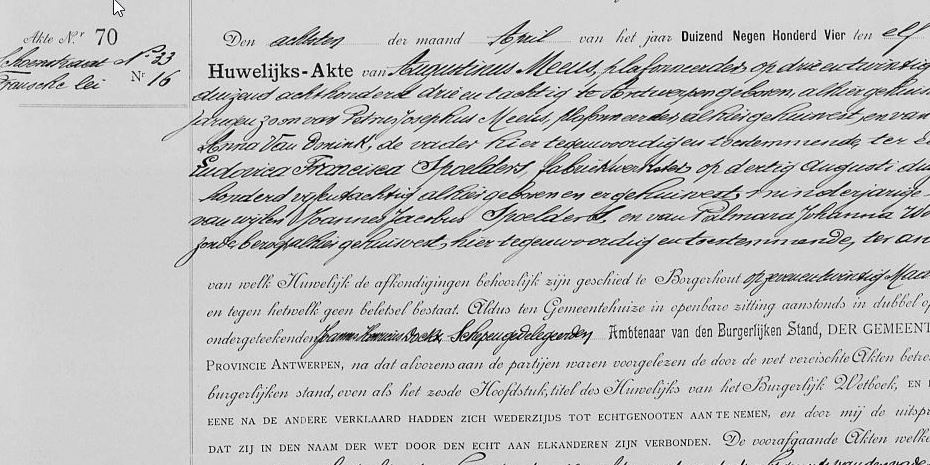 Akte N.r 70
N° 23
lei Nr 16
Den achtsten der maand April van het jaar Duizend Negen Honderd Vier ten elf
Huwelijks-Akte van Augustinus Meeus, plafonneerder, op drie en twintig
duizend achthonderd drie en tachtig te Antwerpen geboren, alhier gehuis
jarigen zoon van Petrus Josephus Meeus, plafonneerder, alhier gehuisvest, en van
Anna Van Donink, de vader hier tegenwoordig en toestemmende, ter
Ludovica Francisca Spoelders, fabriekwerkster, op dertig Augusti dui
honderd vijf en tachtig alhier geboren en er gehuisvest, minderjarige
van wijlen Joannes Jacobus Spoelders, en van Palmara Johanna
zonder beroep alhier gehuisvest, hier tegenwoordig en toestemmende, ter an
van welk Huwelijk de afkondigingen behoorlijk zijn geschied te Borgerhout op zeven en twintig Maa
en tegen hetwelk geen beletsel bestaat. Aldus ten Gemeentehuize in openbare zitting aanstonds in dubbel op
ondergeteekenden Joannes Henricus Schepen gedelegeerden Ambtenaar van den Burgerlijken Stand, DER GEMEENT
PROVINCIE ANTWERPEN, na dat alvorens aan de partijen waren voorgelezen de door de wet vereischte Akten betre
burgerlijken stand, even als het zesde Hoofdstuk, titel des Huwelijks van het Burgerlijk Wetboek, EN
EENE NA DE ANDERE VERKLAARD HADDEN ZICH WEDERZIJDS TOT ECHTGENOOTEN AAN TE NEMEN, en door mij de uitspr
DAT ZIJ IN DEN NAAM DER WET DOOR DEN ECHT AAN ELKANDEREN ZIJN VERBONDEN. De voorafgaande Akten welke